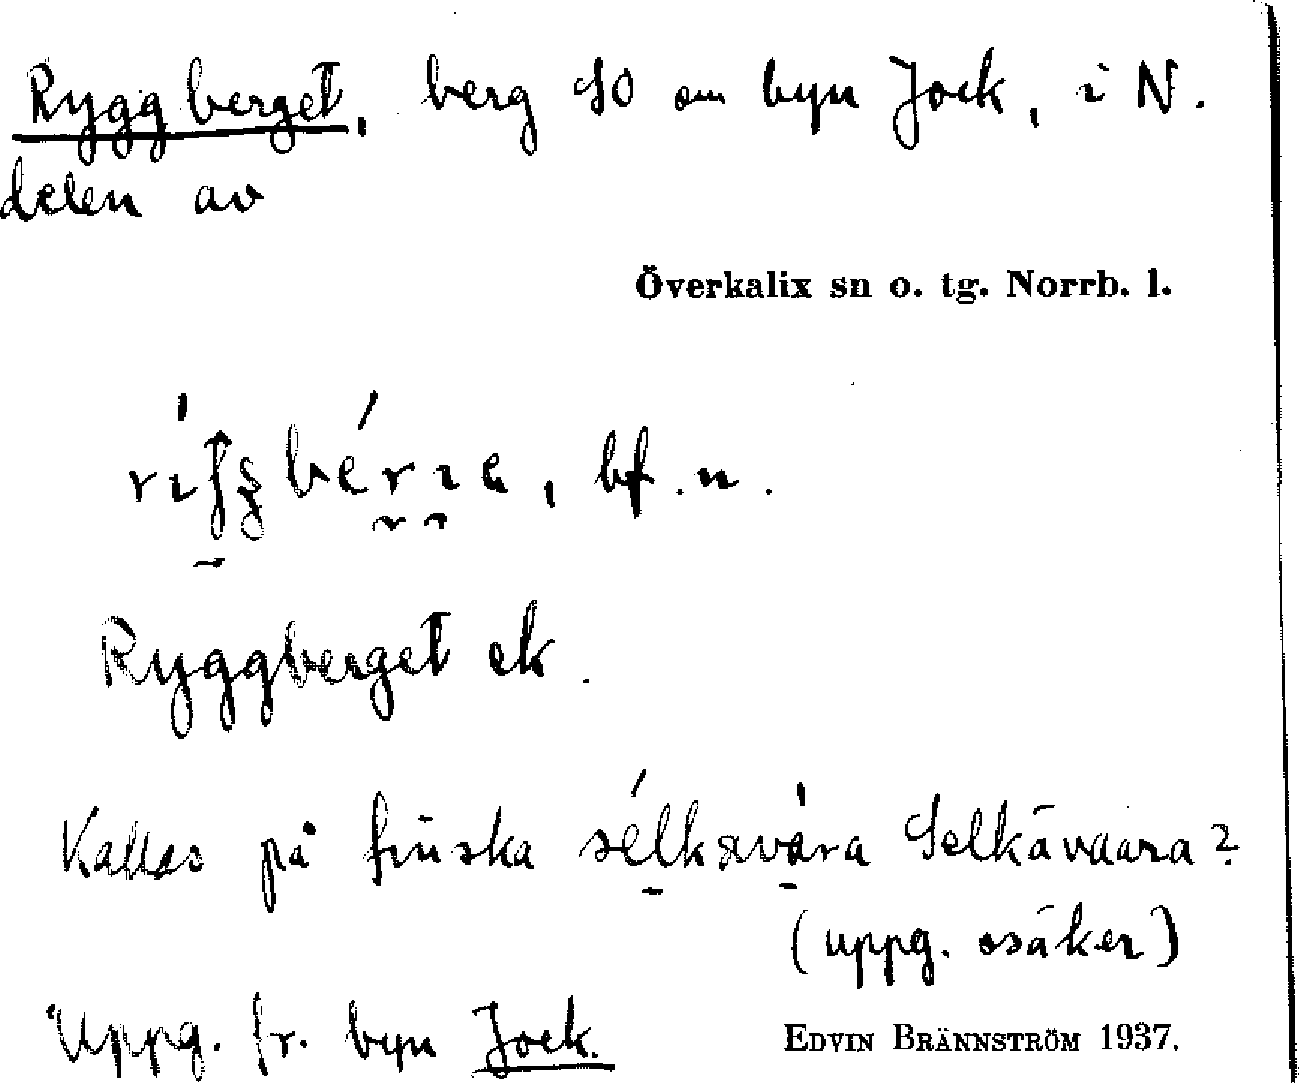 Ryggberget, berg SO om byn Jock, i N.
delen av
Överkalix sn o. tg. Norrb. l.
bf. n.
Ryggberget ek.
Kallas på finska Selkävaara?
(uppg. osäker)
Uppg. fr. byn Jock.
EDVIN BRÄNNSTRÖM 1937.